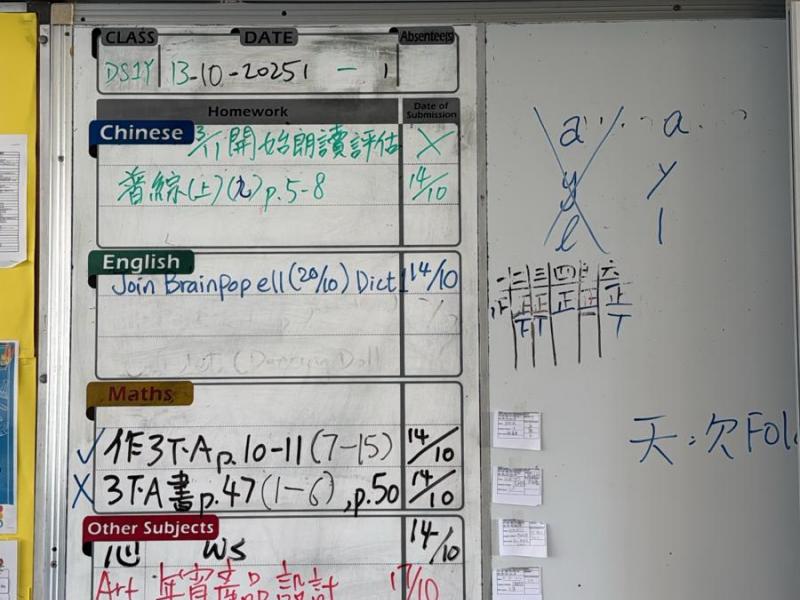 CLASS DATE Absentees
DS1Y 13-10-2025 1 - 1
Homework Date of Submission
Chinese
3/11 開始朗讀評估 X
着綜(上)(九) p.5-8 14/10
English
Join Brainpop ell (20/10) Dict 1 14/10
Maths
✓ 作3T.A p.10-11 (7-15) 14/10
X 3T.A書p.47 (1-6), p.50 14/10
Other Subjects
心 WS 14/10
Art 年宵產品設計 17/10
a a
y y
l l
一 二 三 四 六
正
天:欠Fol